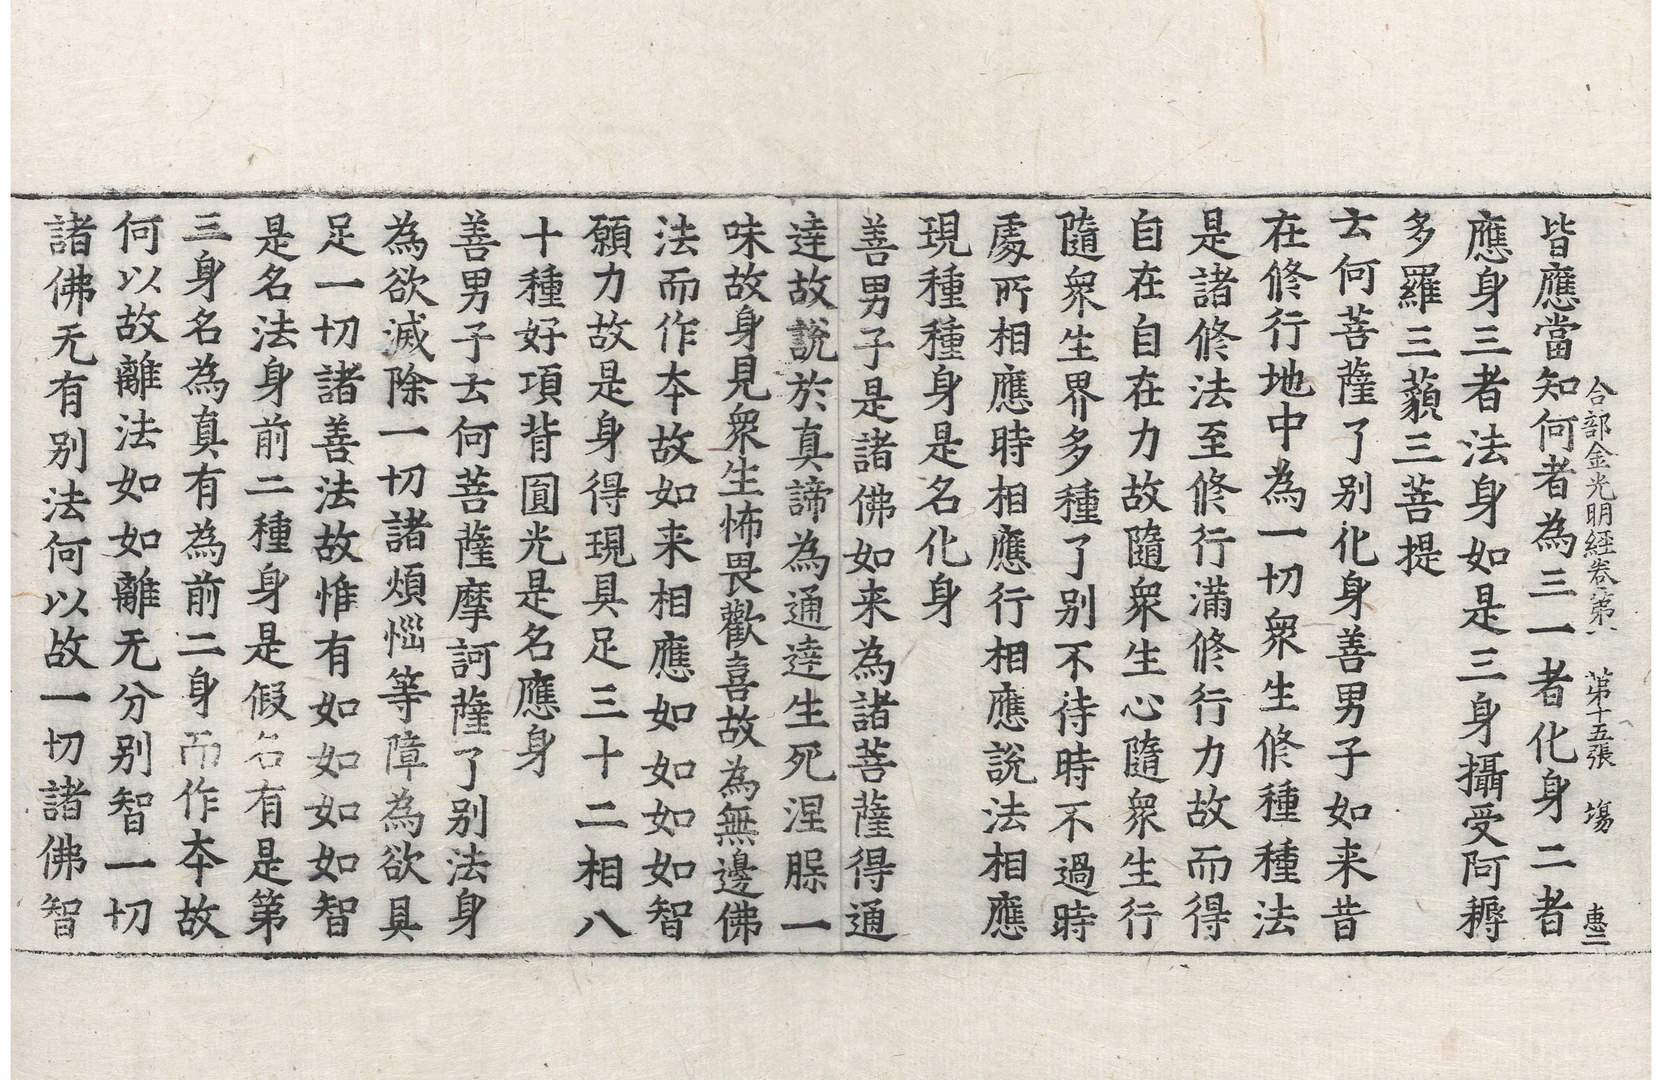 合部金光明経卷第一 第十五張 塲 惠二
皆應當知何者為三一者化身二者
應身三者法身如是三身攝受阿耨
多羅三藐三菩提
云何菩薩了别化身善男子如来昔
在修行地中為一切衆生修種種法
是諸修法至修行滿修行力故而得
自在自在力故隨衆生心隨衆生行
隨衆生界多種了别不待時不過時
處所相應時相應行相應說法相應
現種種身是名化身
善男子是諸佛如来為諸菩薩得通
達故說於真諦為通達生死涅槃一
味故身見衆生怖畏歡喜故為無邊佛
法而作夲故如来相應如如如如智
願力故是身得現具足三十二相八
十種好項背圓光是名應身
善男子云何菩薩摩訶薩了别法身
為欲滅除一切諸煩惱等障為欲具
足一切諸善法故惟有如如如如智
是名法身前二種身是假名有是第
三身名為真有為前二身而作夲故
何以故離法如如離无分别智一切
諸佛无有别法何以故一切諸佛智